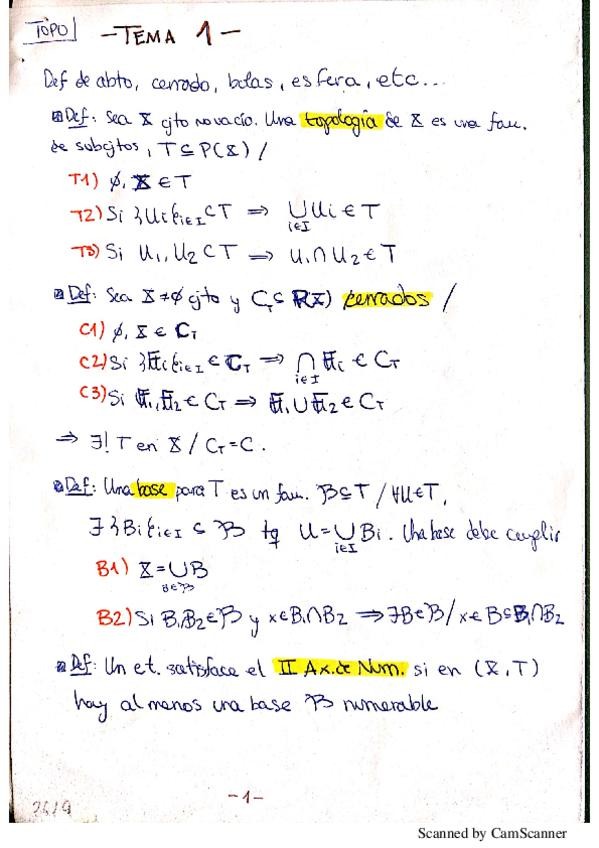 TOPO
-TEMA 1-
Def de abto, cerrado, bolas, esfera, etc...
Def: Sea X cjto no vacío. Una topología de X es una fam.
de subcjtos, T ⊆ P(X) /
T1) ∅, X ∈ T
T2) Si {Ui}i∈I ⊂ T ⇒ ⋃i∈I Ui ∈ T
T3) Si U1, U2 ⊂ T ⇒ U1 ∩ U2 ∈ T
Def: Sea X ≠ ∅ cjto y CT ⊆ P(X) cerrados /
C1) ∅, X ∈ CT
C2) Si {Fi}i∈I ∈ CT ⇒ ⋂i∈I Fi ∈ CT
C3) Si F1, F2 ∈ CT ⇒ F1 ∪ F2 ∈ CT
⇒ ∃! T en X / CT = C.
Def: Una base para T es un fam. B ⊆ T / ∀U ∈ T,
∃ {Bi}i∈I ⊆ B tq U = ⋃i∈I Bi. Una base debe cumplir
B1) X = ⋃B∈B B
B2) Si B1, B2 ∈ B y x ∈ B1 ∩ B2 ⇒ ∃B ∈ B / x ∈ B ⊆ B1 ∩ B2
Def: Un e.t. satisface el II Ax. de Num. si en (X, T)
hay al menos una base B numerable
-1-
26/9
Scanned by CamScanner